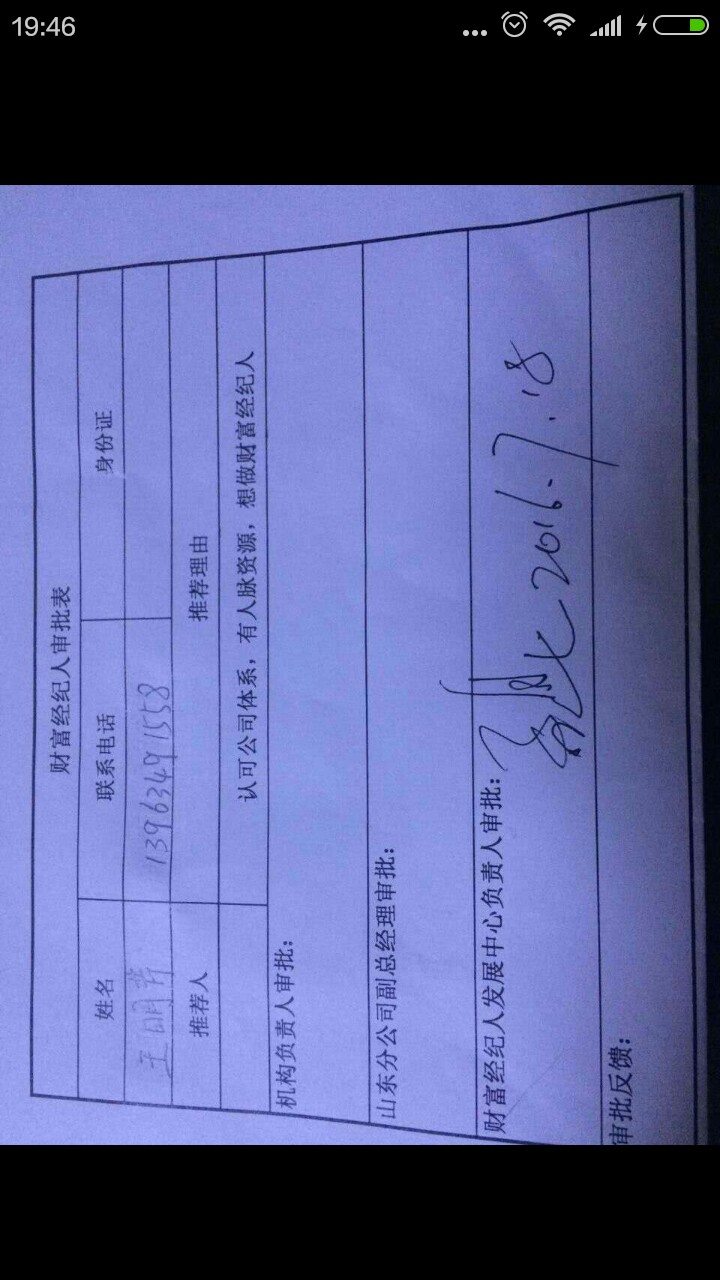 19:46
财富经纪人审批表
姓名 联系电话 身份证
王明 13963491558
推荐人 推荐理由
认可公司体系，有人脉资源，想做财富经纪人
机构负责人审批：
山东分公司副总经理审批：
财富经纪人发展中心负责人审批： 2016.7.18
审批反馈：